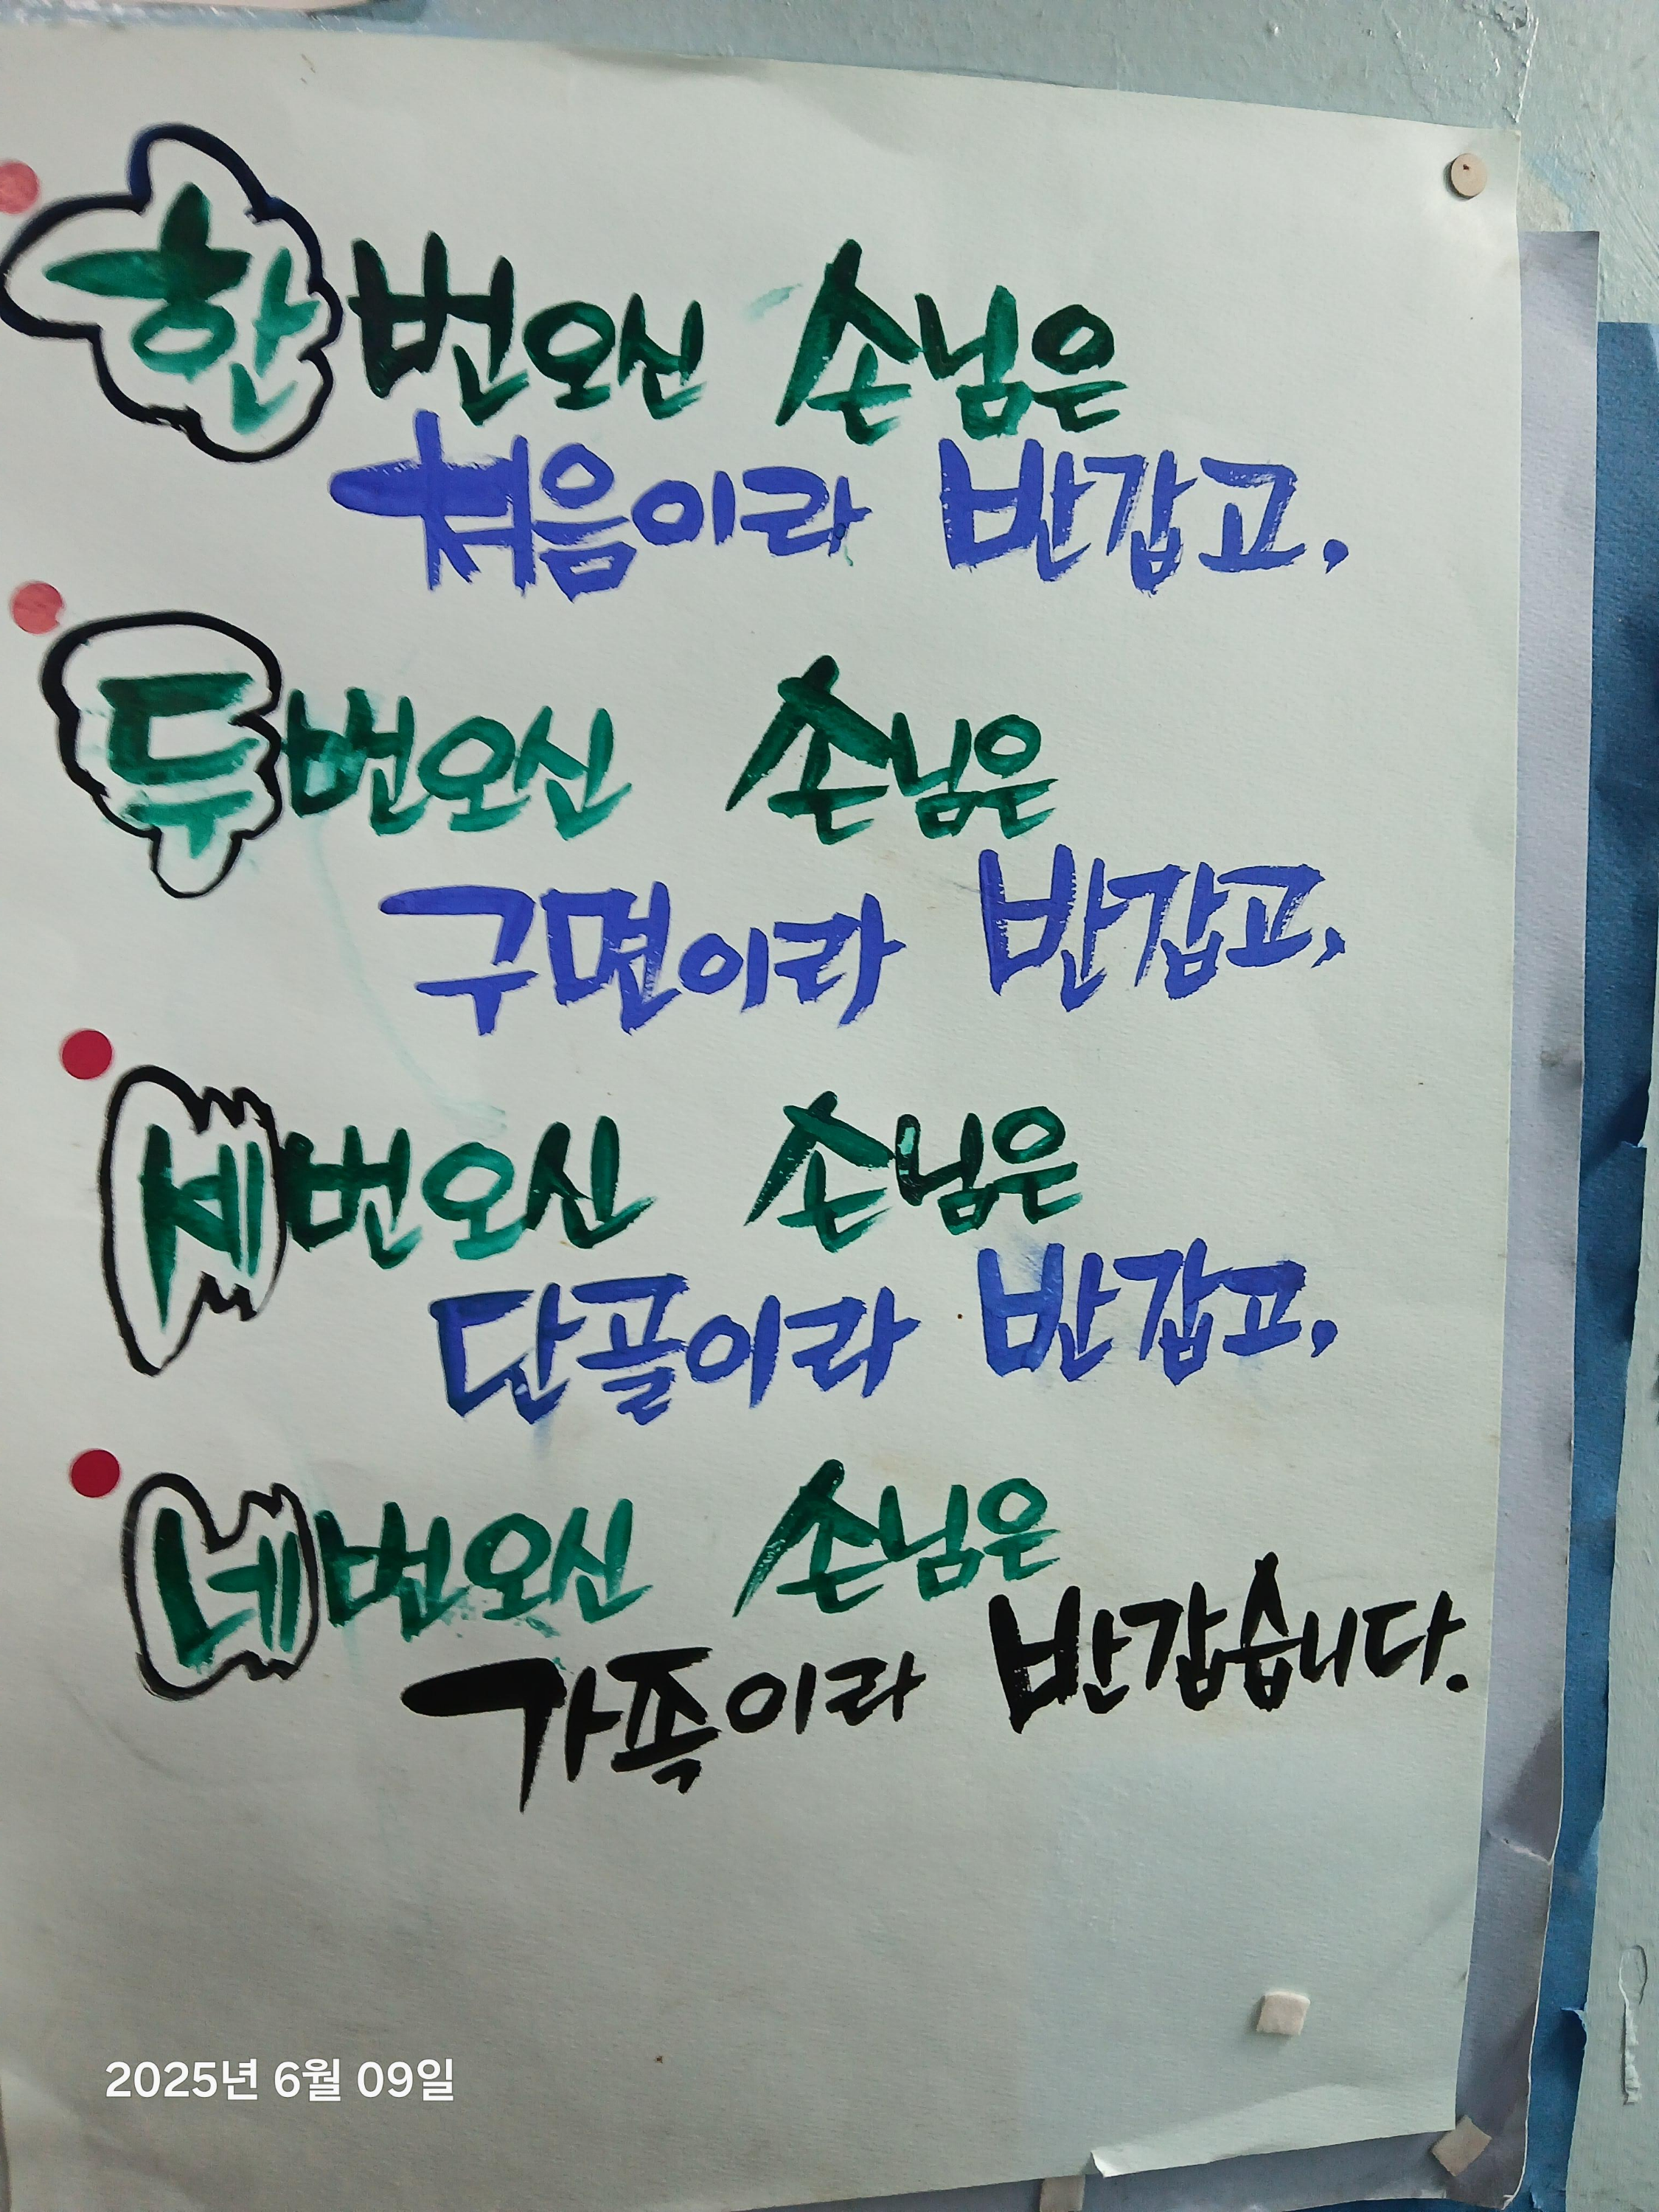 한번오신 손님은
처음이라 반갑고,
두번오신 손님은
구면이라 반갑고,
세번오신 손님은
단골이라 반갑고,
네번오신 손님은
가족이라 반갑습니다.
2025년 6월 09일